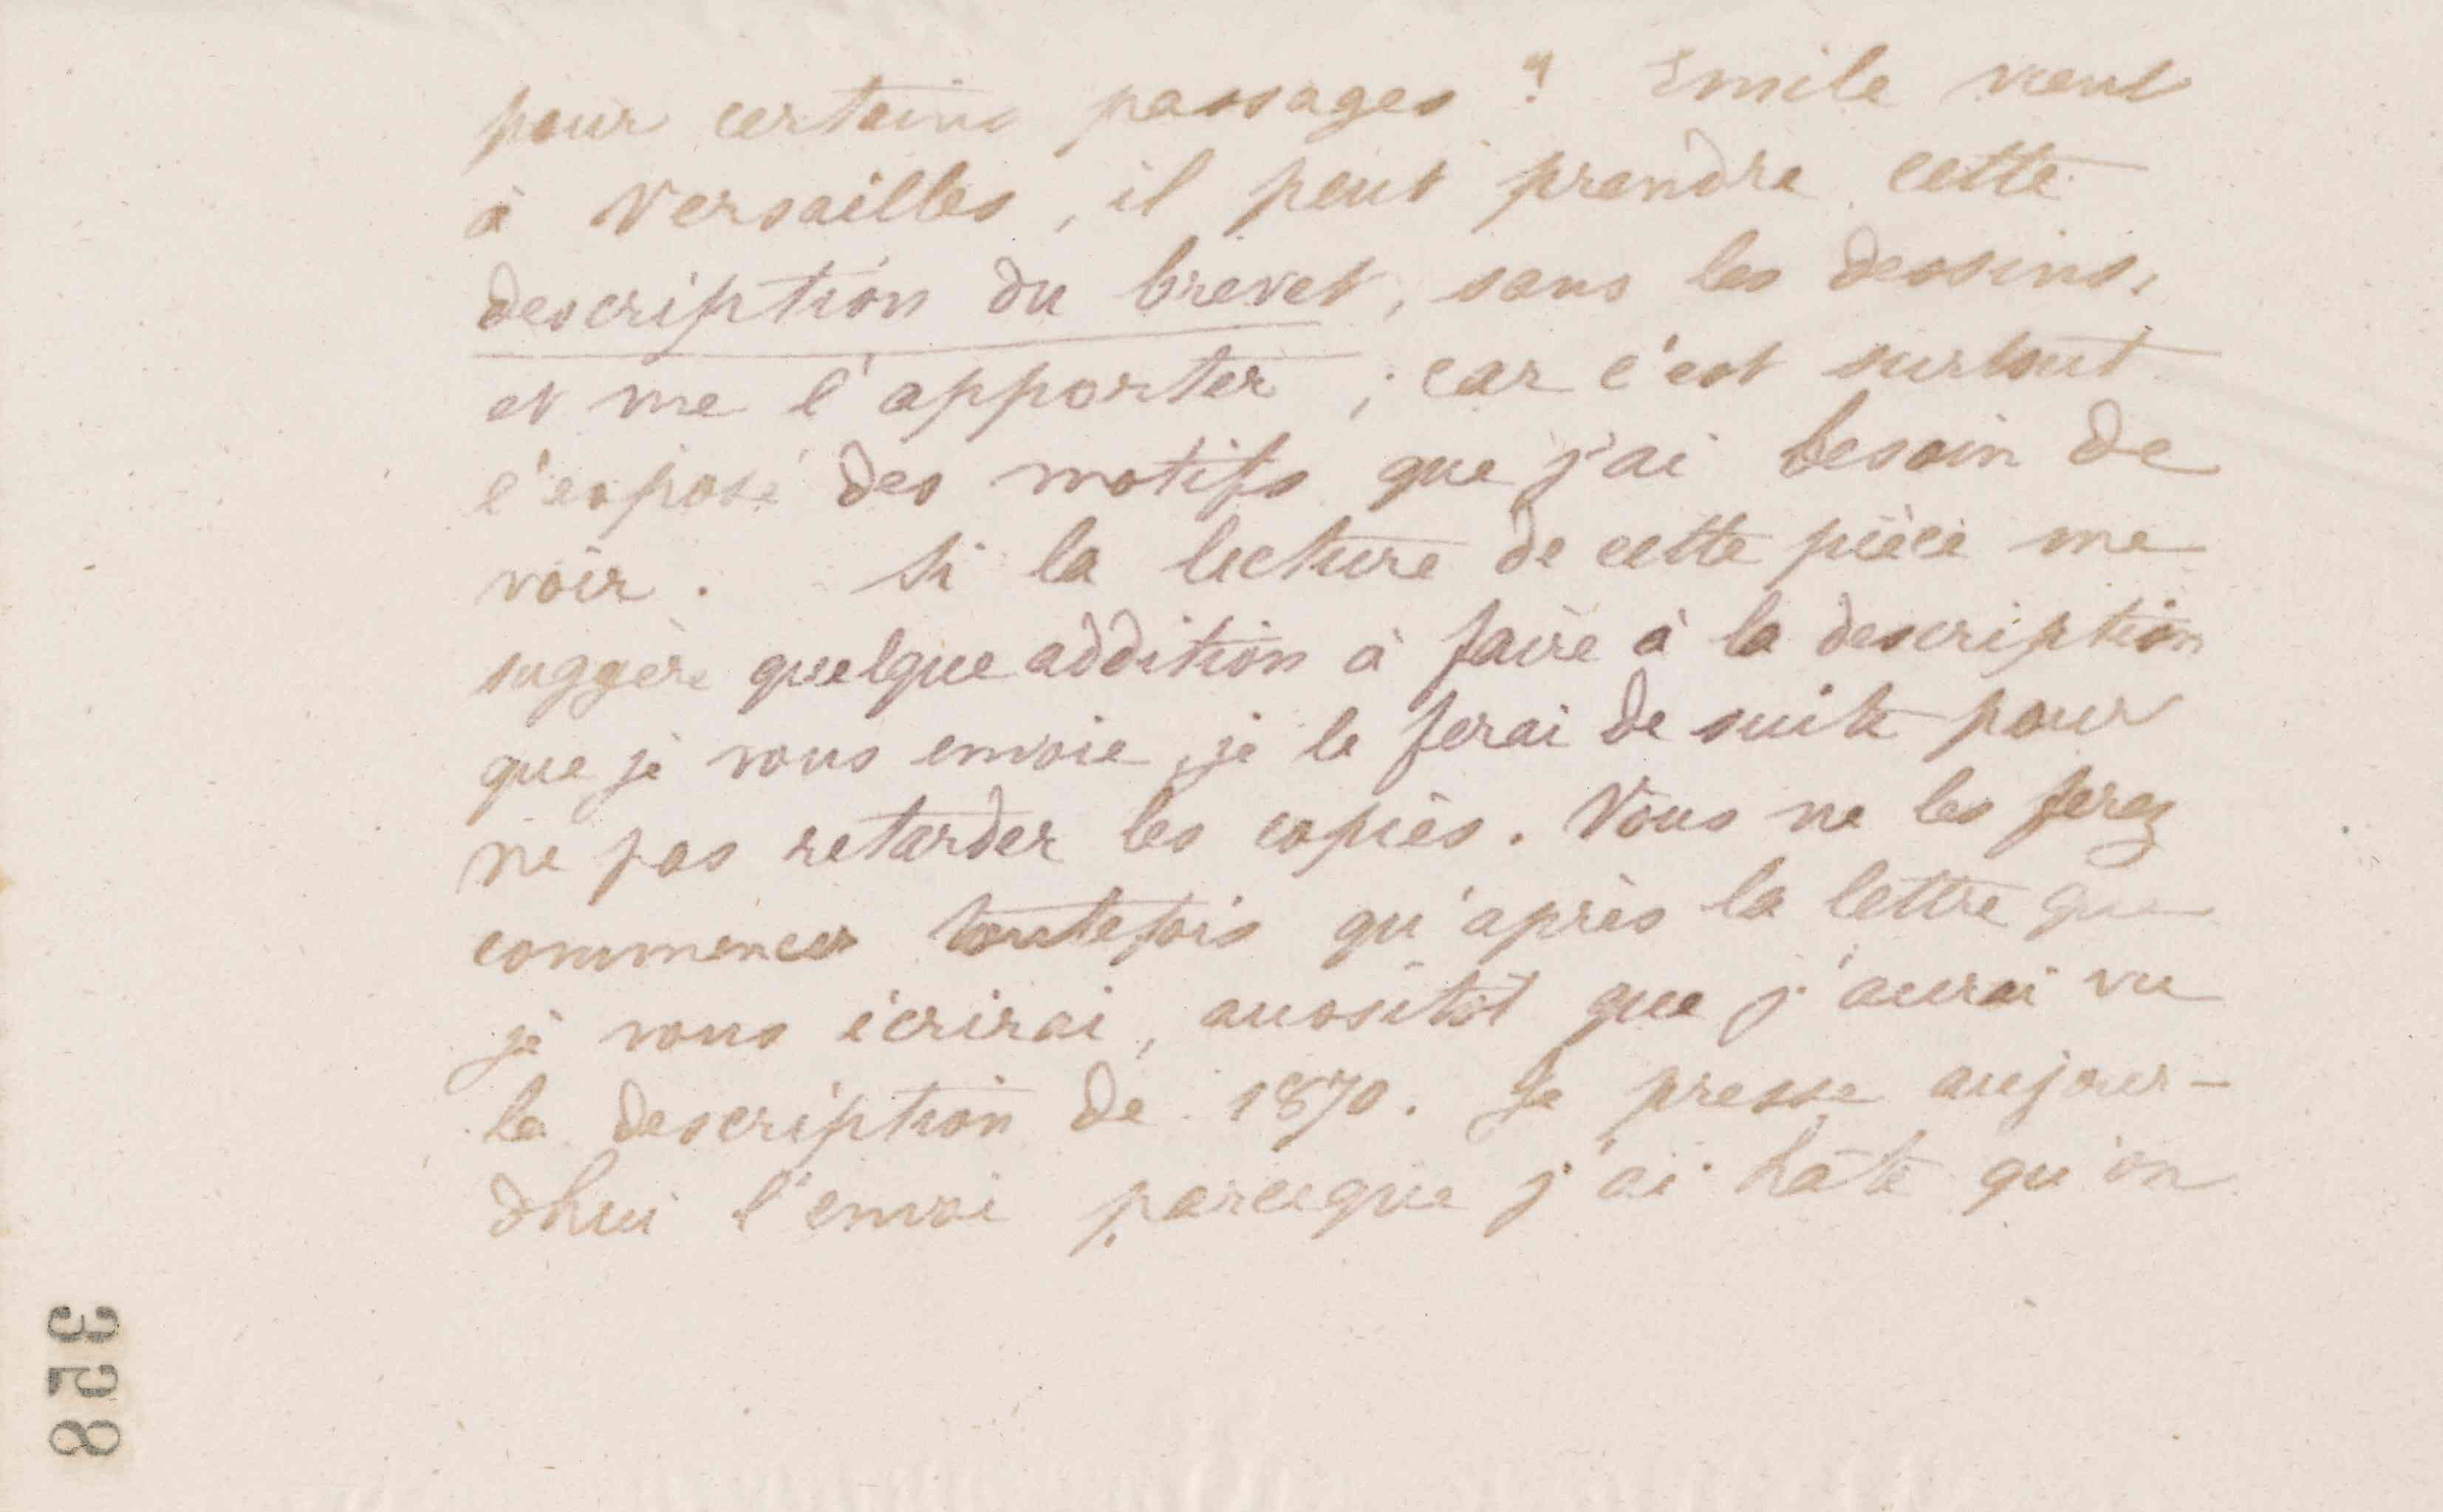 pour certains passages ? Emile vient
à Versailles, il peut prendre cette
description du brevet, sans les dessins,
et me l'apporter ; car c'est surtout
l'exposé des motifs que j'ai besoin de
voir. Si la lecture de cette pièce me
suggère quelque addition à faire à la description
que je vous envoie, je le ferai de suite pour
ne pas retarder les copies. Vous ne les ferez
commencer toutefois qu'après la lettre que
je vous écrirai, aussitôt que j'aurai vu
la description de 1870. Je presse aujour-
dhui l'envoi parceque j'ai hâte qu'on
358